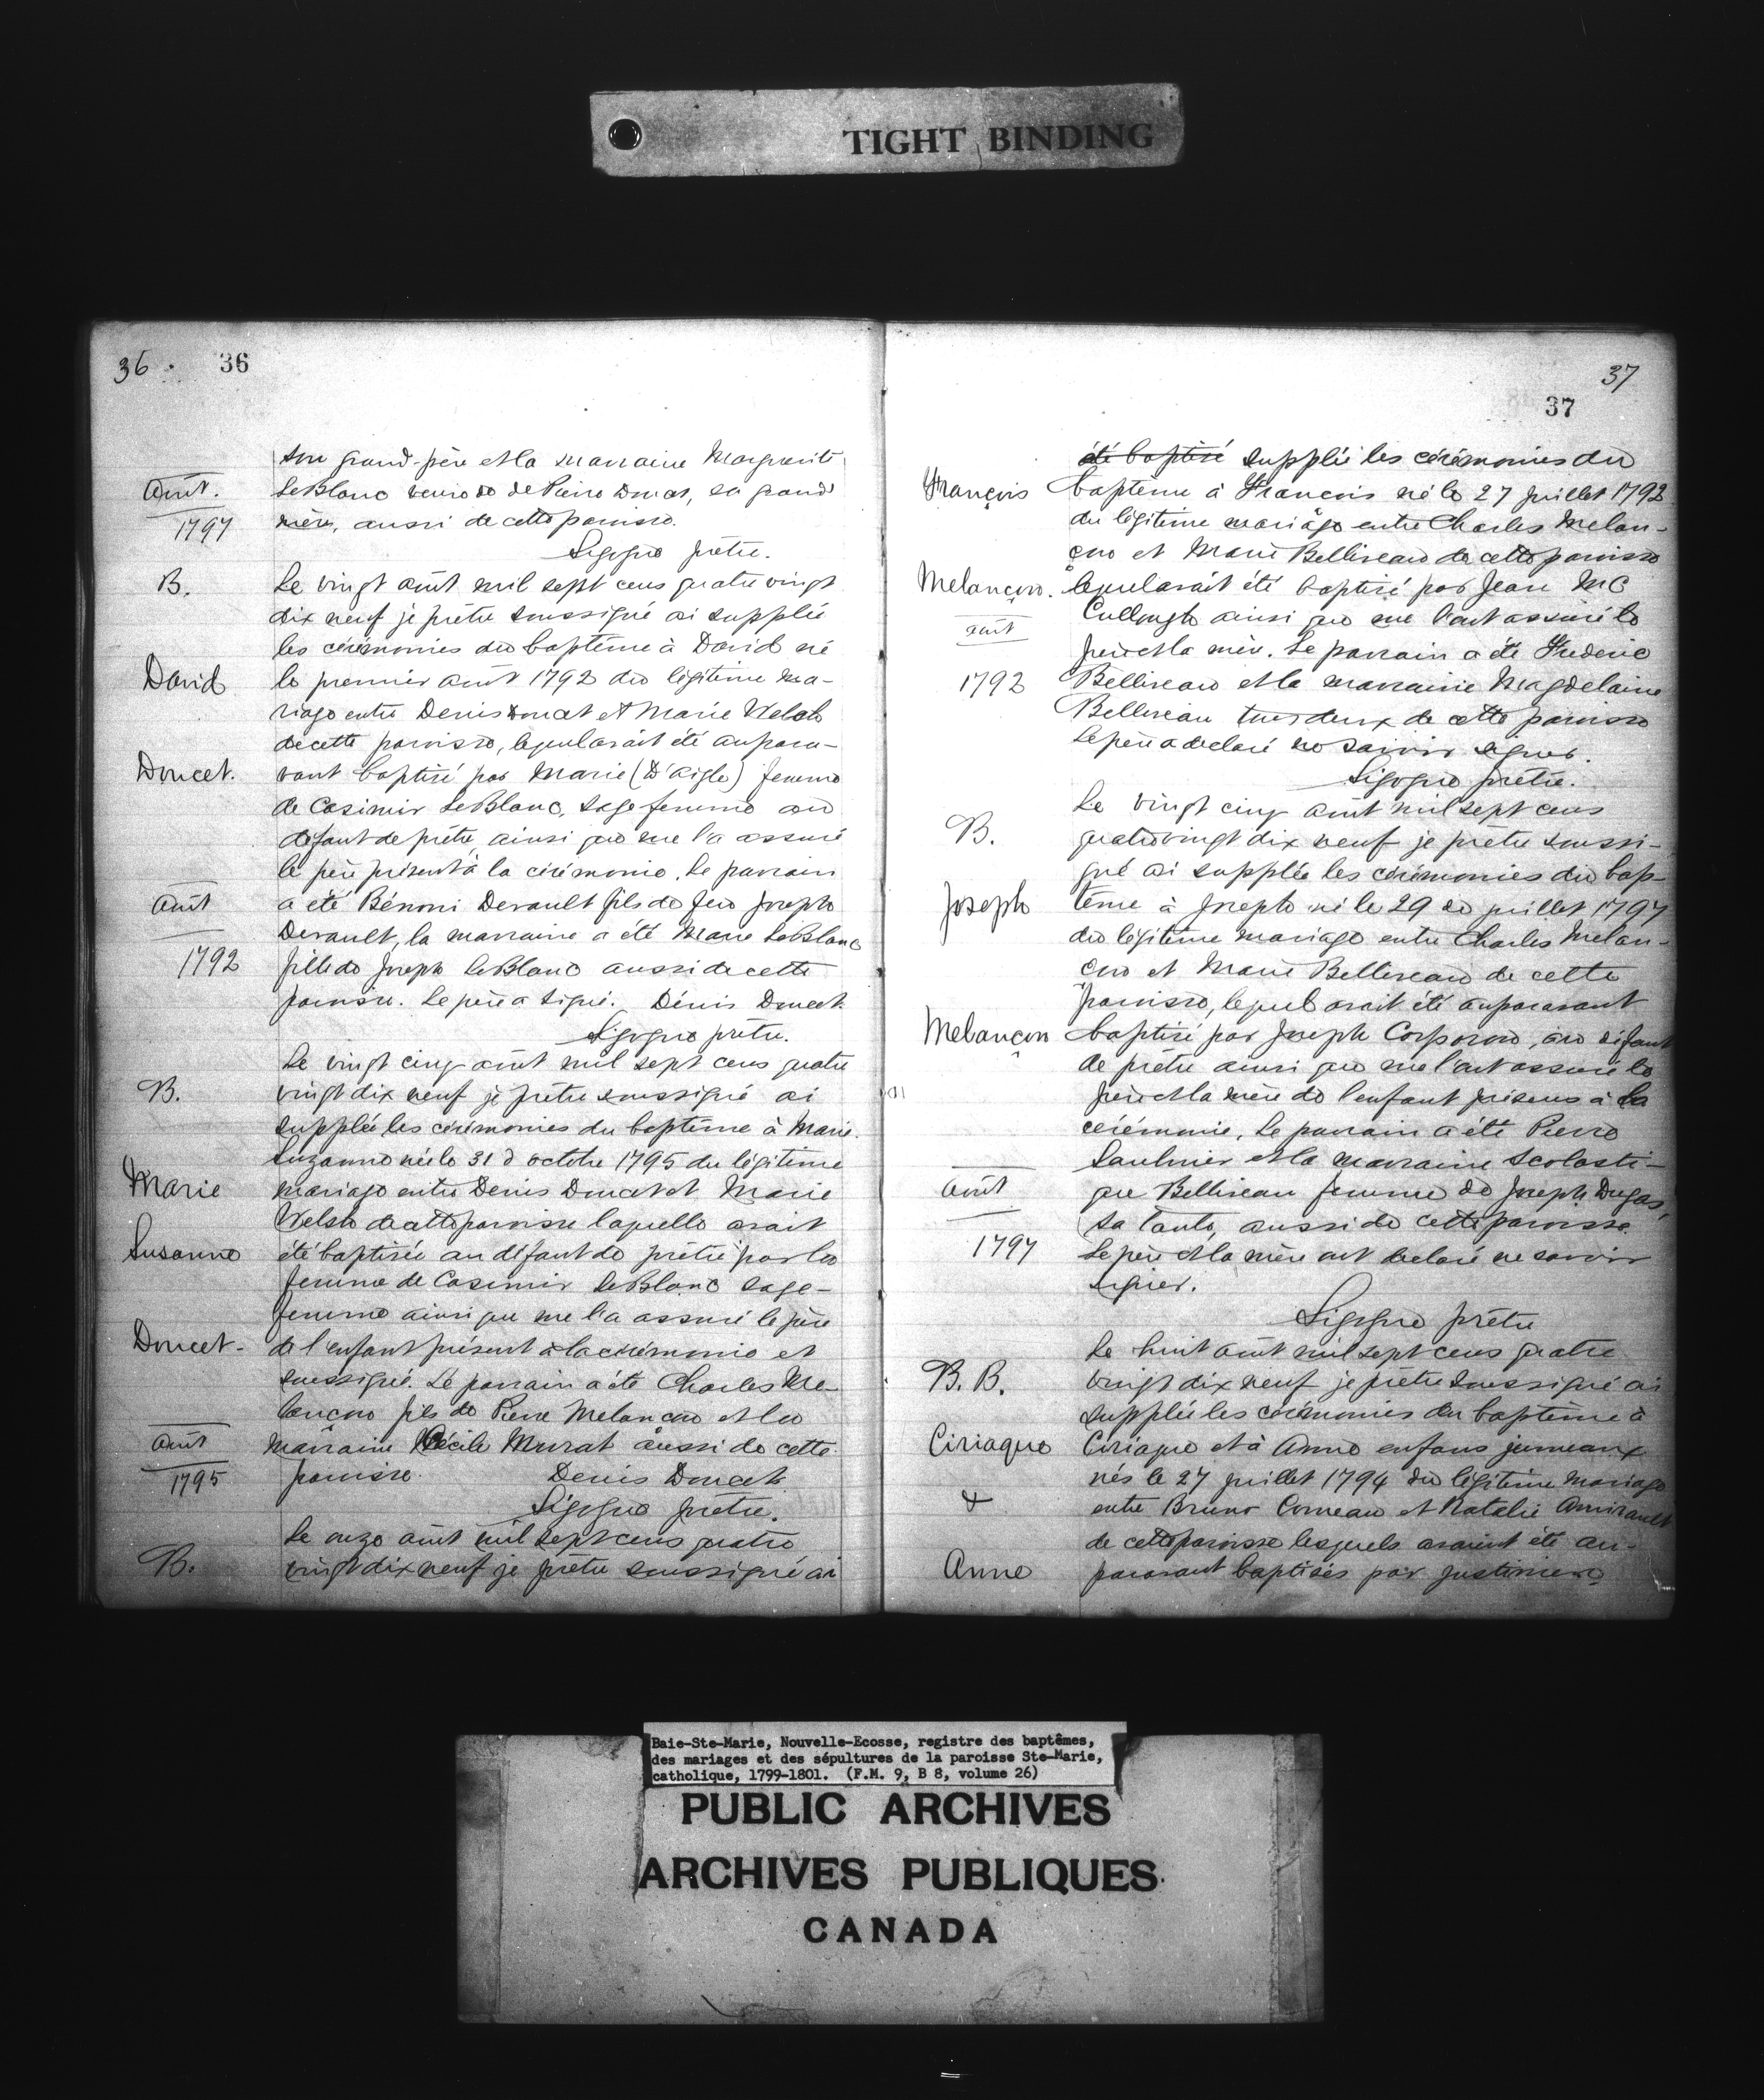 TIGHT BINDING
36. 36
son grand-père et la marraine Marguerite
Août. LeBlanc veuve de Pierre Doucet, sa grand
1797 mère, aussi de cette paroisse.
Sigogne prêtre.
B. Le vingt août mil sept cens quatre vingt
dix neuf je prêtre soussigné ai supplée
les cérémonies du baptême à David né
David le premier août 1792 du légitime ma-
riage entre Denis Doucet et Marie Welsh
de cette paroisse, lequel avait été aupara-
Doucet. vant baptisé par Marie (D'aigle) femme
de Casimir LeBlanc, sage femme au
défaut de prêtre, ainsi que me l'a assuré
le père présent à la cérémonie. Le parrain
Août a été Bénoni Derault fils de feu Joseph
Derault, la marraine a été Marie LeBlanc
1792 fille de Joseph LeBlanc aussi de cette
paroisse. Le père a signé. Dénis Doucet
Sigogne prêtre.
Le vingt cinq août mil sept cens quatre
B. vingt dix neuf je prêtre soussigné ai
supplée les cérémonies du baptême à Marie
Suzanne née le 31 d octobre 1795 du légitime
Marie mariage entre Denis Doucet et Marie
Welsh de cette paroisse laquelle avait
Susanne été baptisée au défaut de prêtre par la
femme de Casimir LeBlanc sage-
femme ainsi que me l'a assuré le père
Doucet- de l'enfant présent à la cérémonie et
soussigné. Le parrain a été Charles Me-
lançon fils de Pierre Melançon et la
Août marraine Cécile Murat aussi de cette
1795 paroisse. Denis Doucet
Sigogne prêtre.
Le onze août mil sept cens quatre
B. vingt dix neuf je prêtre soussigné ai
37
37
été baptisé supplée les cérémonies du
François baptême à François né le 27 juillet 1792
du légitime mariage entre Charles Melan-
çon et Marie Belliveau de cette paroisse
Melançon. lequel avait été baptisé par Jean Mc
août Cullough ainsi que me l'ont assuré le
père et la mère. Le parrain a été Frederic
1792 Belliveau et la marraine Magdelaine
Belliveau tous deux de cette paroisse
Le père a declaré ne savoir signer.
Sigogne prêtre.
Le vingt cinq août mil sept cens
B. quatre vingt dix neuf je prêtre soussi-
gné ai supplée les cérémonies du bap-
Joseph tême à Joseph né le 29 de juillet 1797
du légitime mariage entre Charles Melan-
çon et Marie Belliveau de cette
paroisse, lequel avait été auparavant
Melançon baptisé par Joseph Corporon, au défaut
de prêtre ainsi que me l'ont assuré le
père et la mère de l'enfant présens à la
cérémonie. Le parrain a été Pierre
Saulnier et la marraine Scolasti-
Août que Belliveau femme de Joseph Dugas,
sa tante, aussi de cette paroisse.
1797 Le père et la mère ont declaré ne savoir
signer.
Sigogne prêtre
Le huit août mil sept cens quatre
B. B. vingt dix neuf je prêtre soussigné ai
supplée les cérémonies du baptême à
Ciriaque Ciriaque et à Anne enfans jumeaux
nés le 27 juillet 1794 du légitime mariage
& entre Bruno Comeau et Natalie Amirault
de cette paroisse lesquels avaient été au-
Anne paravant baptisés par Justinien
Baie-Ste-Marie, Nouvelle-Ecosse, registre des baptêmes,
des mariages et des sépultures de la paroisse Ste-Marie,
catholique, 1799-1801. (F.M. 9, B 8, volume 26)
PUBLIC ARCHIVES
ARCHIVES PUBLIQUES
CANADA